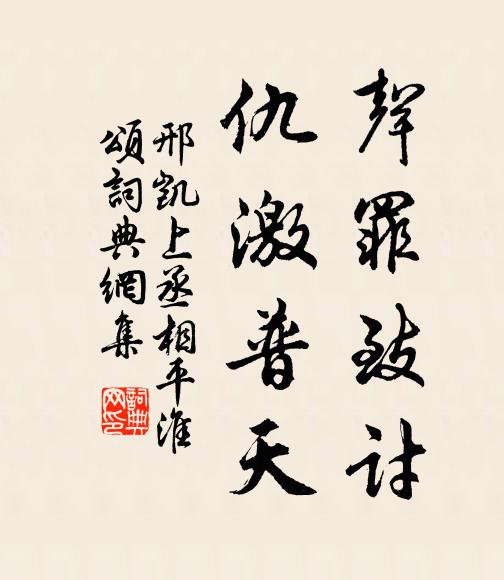 聲罪致討
仇激普天
邢凱上丞相平淮
頌詞典網集
詞典網印